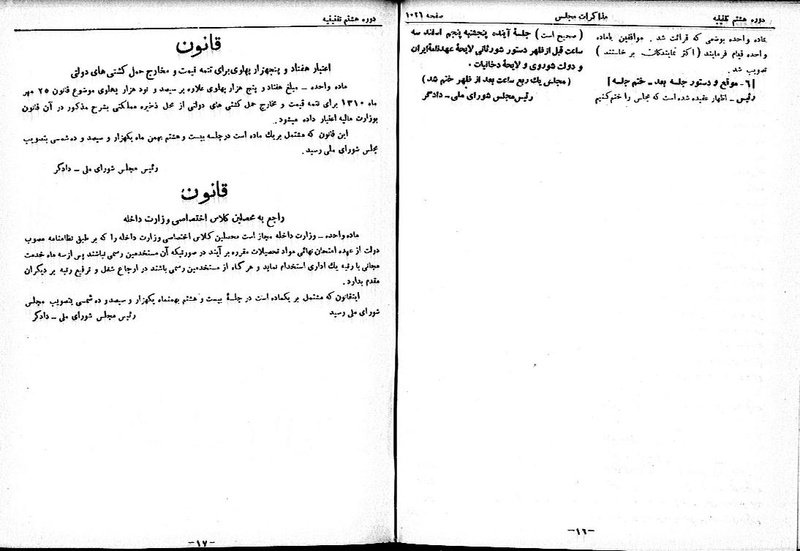 دوره هشتم تقنینیه
مذاکرات مجلس
صفحه ۱۰۲۶
بماده واحده بوضعی که قرائت شد . موافقین بماده
واحده قیام فرمایند ( اکثر نمایندگان بر خاستند )
تصویب شد .
[۶ - موقع و دستور جلسه بعد - ختم جلسه]
رئیس - اظهار عقیده شده است که مجلس را ختم کنیم
( صحیح است ) جلسهٔ آینده پنجشنبه پنجم اسفند سه
ساعت قبل از ظهر دستور شور ثانی لایحهٔ عهدنامهٔ ایران
و دولت شوروی و لایحهٔ دخانیات .
( مجلس یك ربع ساعت بعد از ظهر ختم شد )
رئیس مجلس شورای ملی - دادگر
-۱۶-
دوره هشتم تقنینیه
قانون
اعتبار هفتاد و پنجهزار پهلوی برای تتمه قیمت و مخارج حمل کشتی های دولتی
ماده واحده - مبلغ هفتاد و پنج هزار پهلوی علاوه بر سیصد و نود هزار پهلوی موضوع قانون ۲۵ مهر
ماه ۱۳۱۰ برای تتمه قیمت و مخارج حمل کشتی های دولتی از محل ذخیره مملکتی بشرح مذکور در آن قانون
بوزارت مالیه اعتبار داده میشود .
این قانون که مشتمل بر یك ماده است در جلسه بیست و هشتم بهمن ماه یکهزار و سیصد و ده شمسی بتصویب
مجلس شورای ملی رسید .
رئیس مجلس شورای ملی - دادگر
قانون
راجع به محصلین کلاس اختصاصی وزارت داخله
ماده واحده - وزارت داخله مجاز است محصلین کلاس اختصاصی وزارت داخله را که بر طبق نظامنامه مصوب
دولت از عهده امتحان نهائی مواد تحصیلات مقرره بر آیند در صورتیکه آن مستخدمین رسمی نباشند پس از سه ماه خدمت
مجانی با رتبه یك اداری استخدام نماید و هر گاه از مستخدمین رسمی باشند در ارجاع شغل و ترفیع رتبه بر دیگران
مقدم بدارد .
اینقانون که مشتمل بر یکماده است در جلسهٔ بیست و هشتم بهمنماه یکهزار و سیصد و ده شمسی بتصویب مجلس
شورای ملی رسید
رئیس مجلس شورای ملی - دادگر
-۱۷-